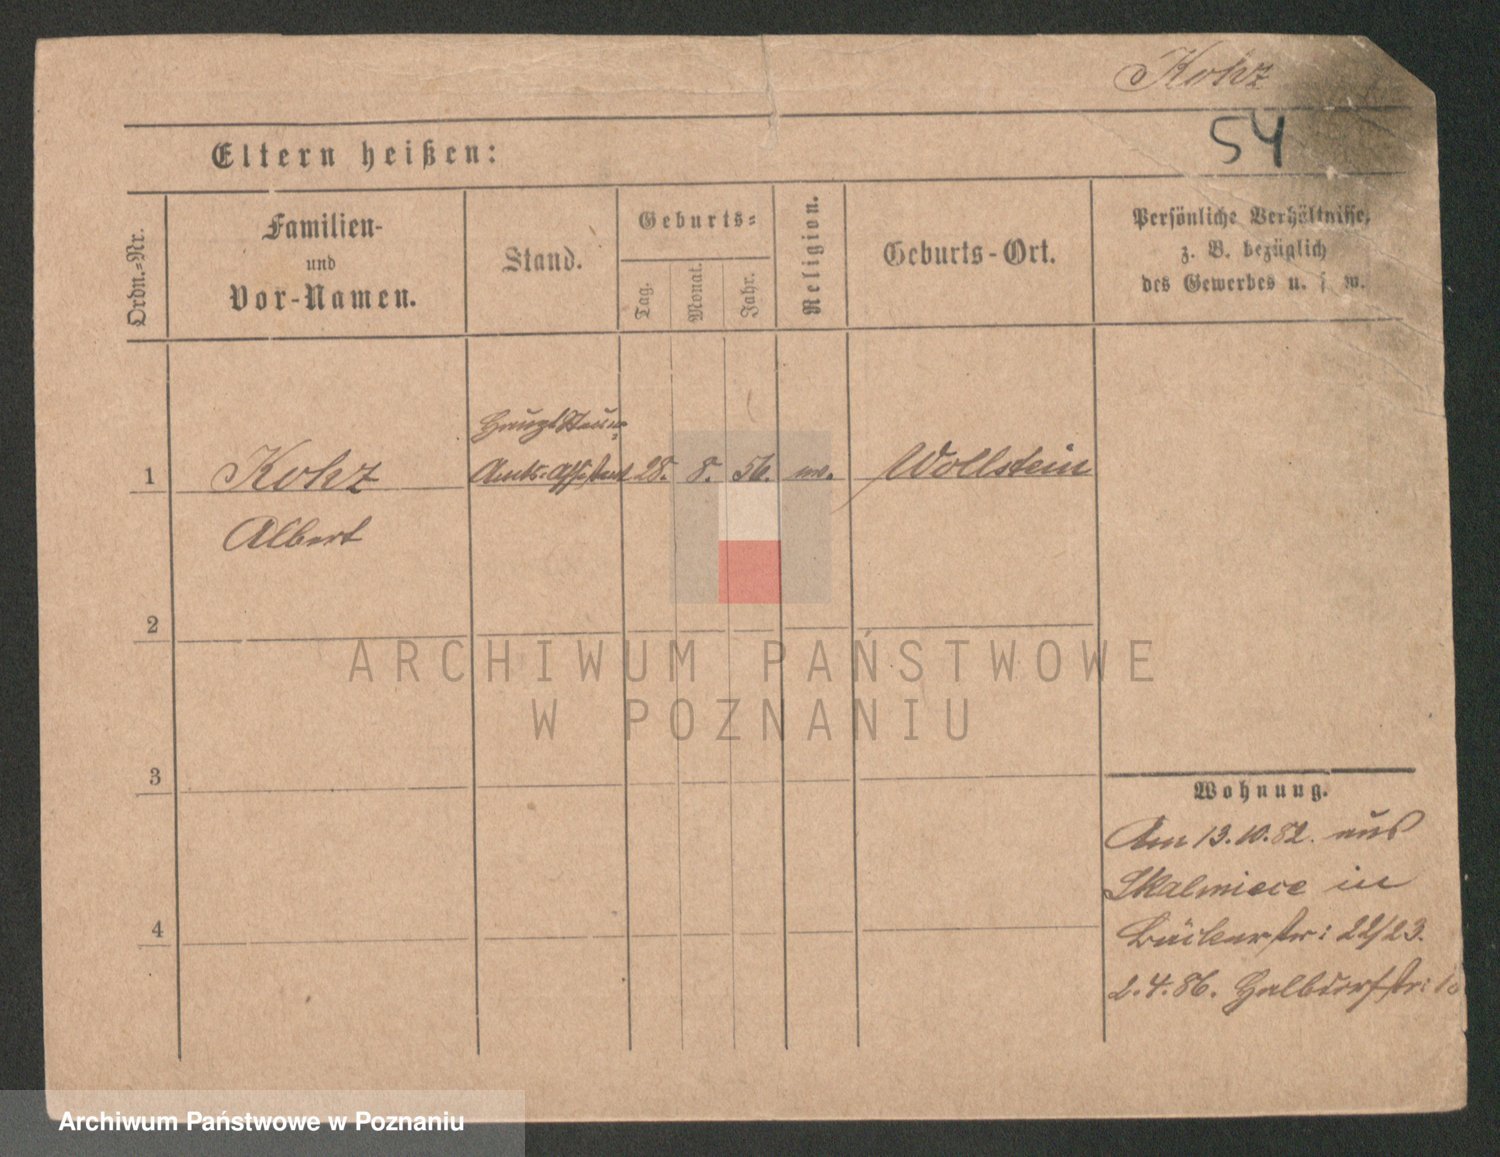 Kohz
54
Eltern heißen:
Ordn.-Nr.
Familien-
und
Vor-Namen.
Stand.
Geburts-
Tag.
Monat.
Jahr.
Religion.
Geburts-Ort.
Persönliche Verhältnisse,
z. B. bezüglich
des Gewerbes u. s. w.
Haupt Steuer
1 Kohz Amts-Assistent 28. 8. 56. Wollstein
Albert
2
3
4
Wohnung.
Am 13.10.82. aus
Skalmiece in
Bäckerstr: 22/23.
2.4.86. Halbdorfstr:
ARCHIWUM PAŃSTWOWE
W POZNANIU
Archiwum Państwowe w Poznaniu